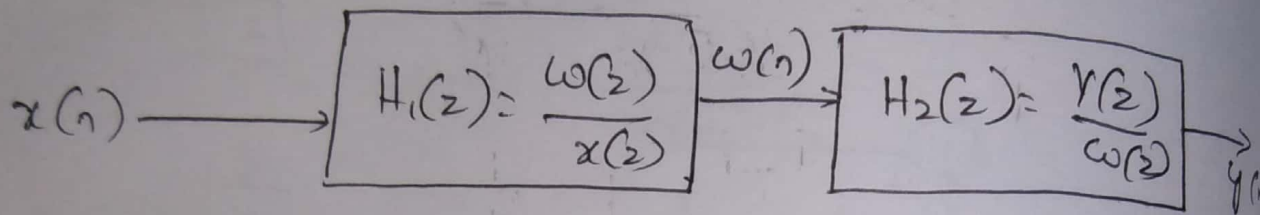 x(n) H₁(z) = ω(z) / x(z) ω(n) H₂(z) = Y(z) / ω(z) y(